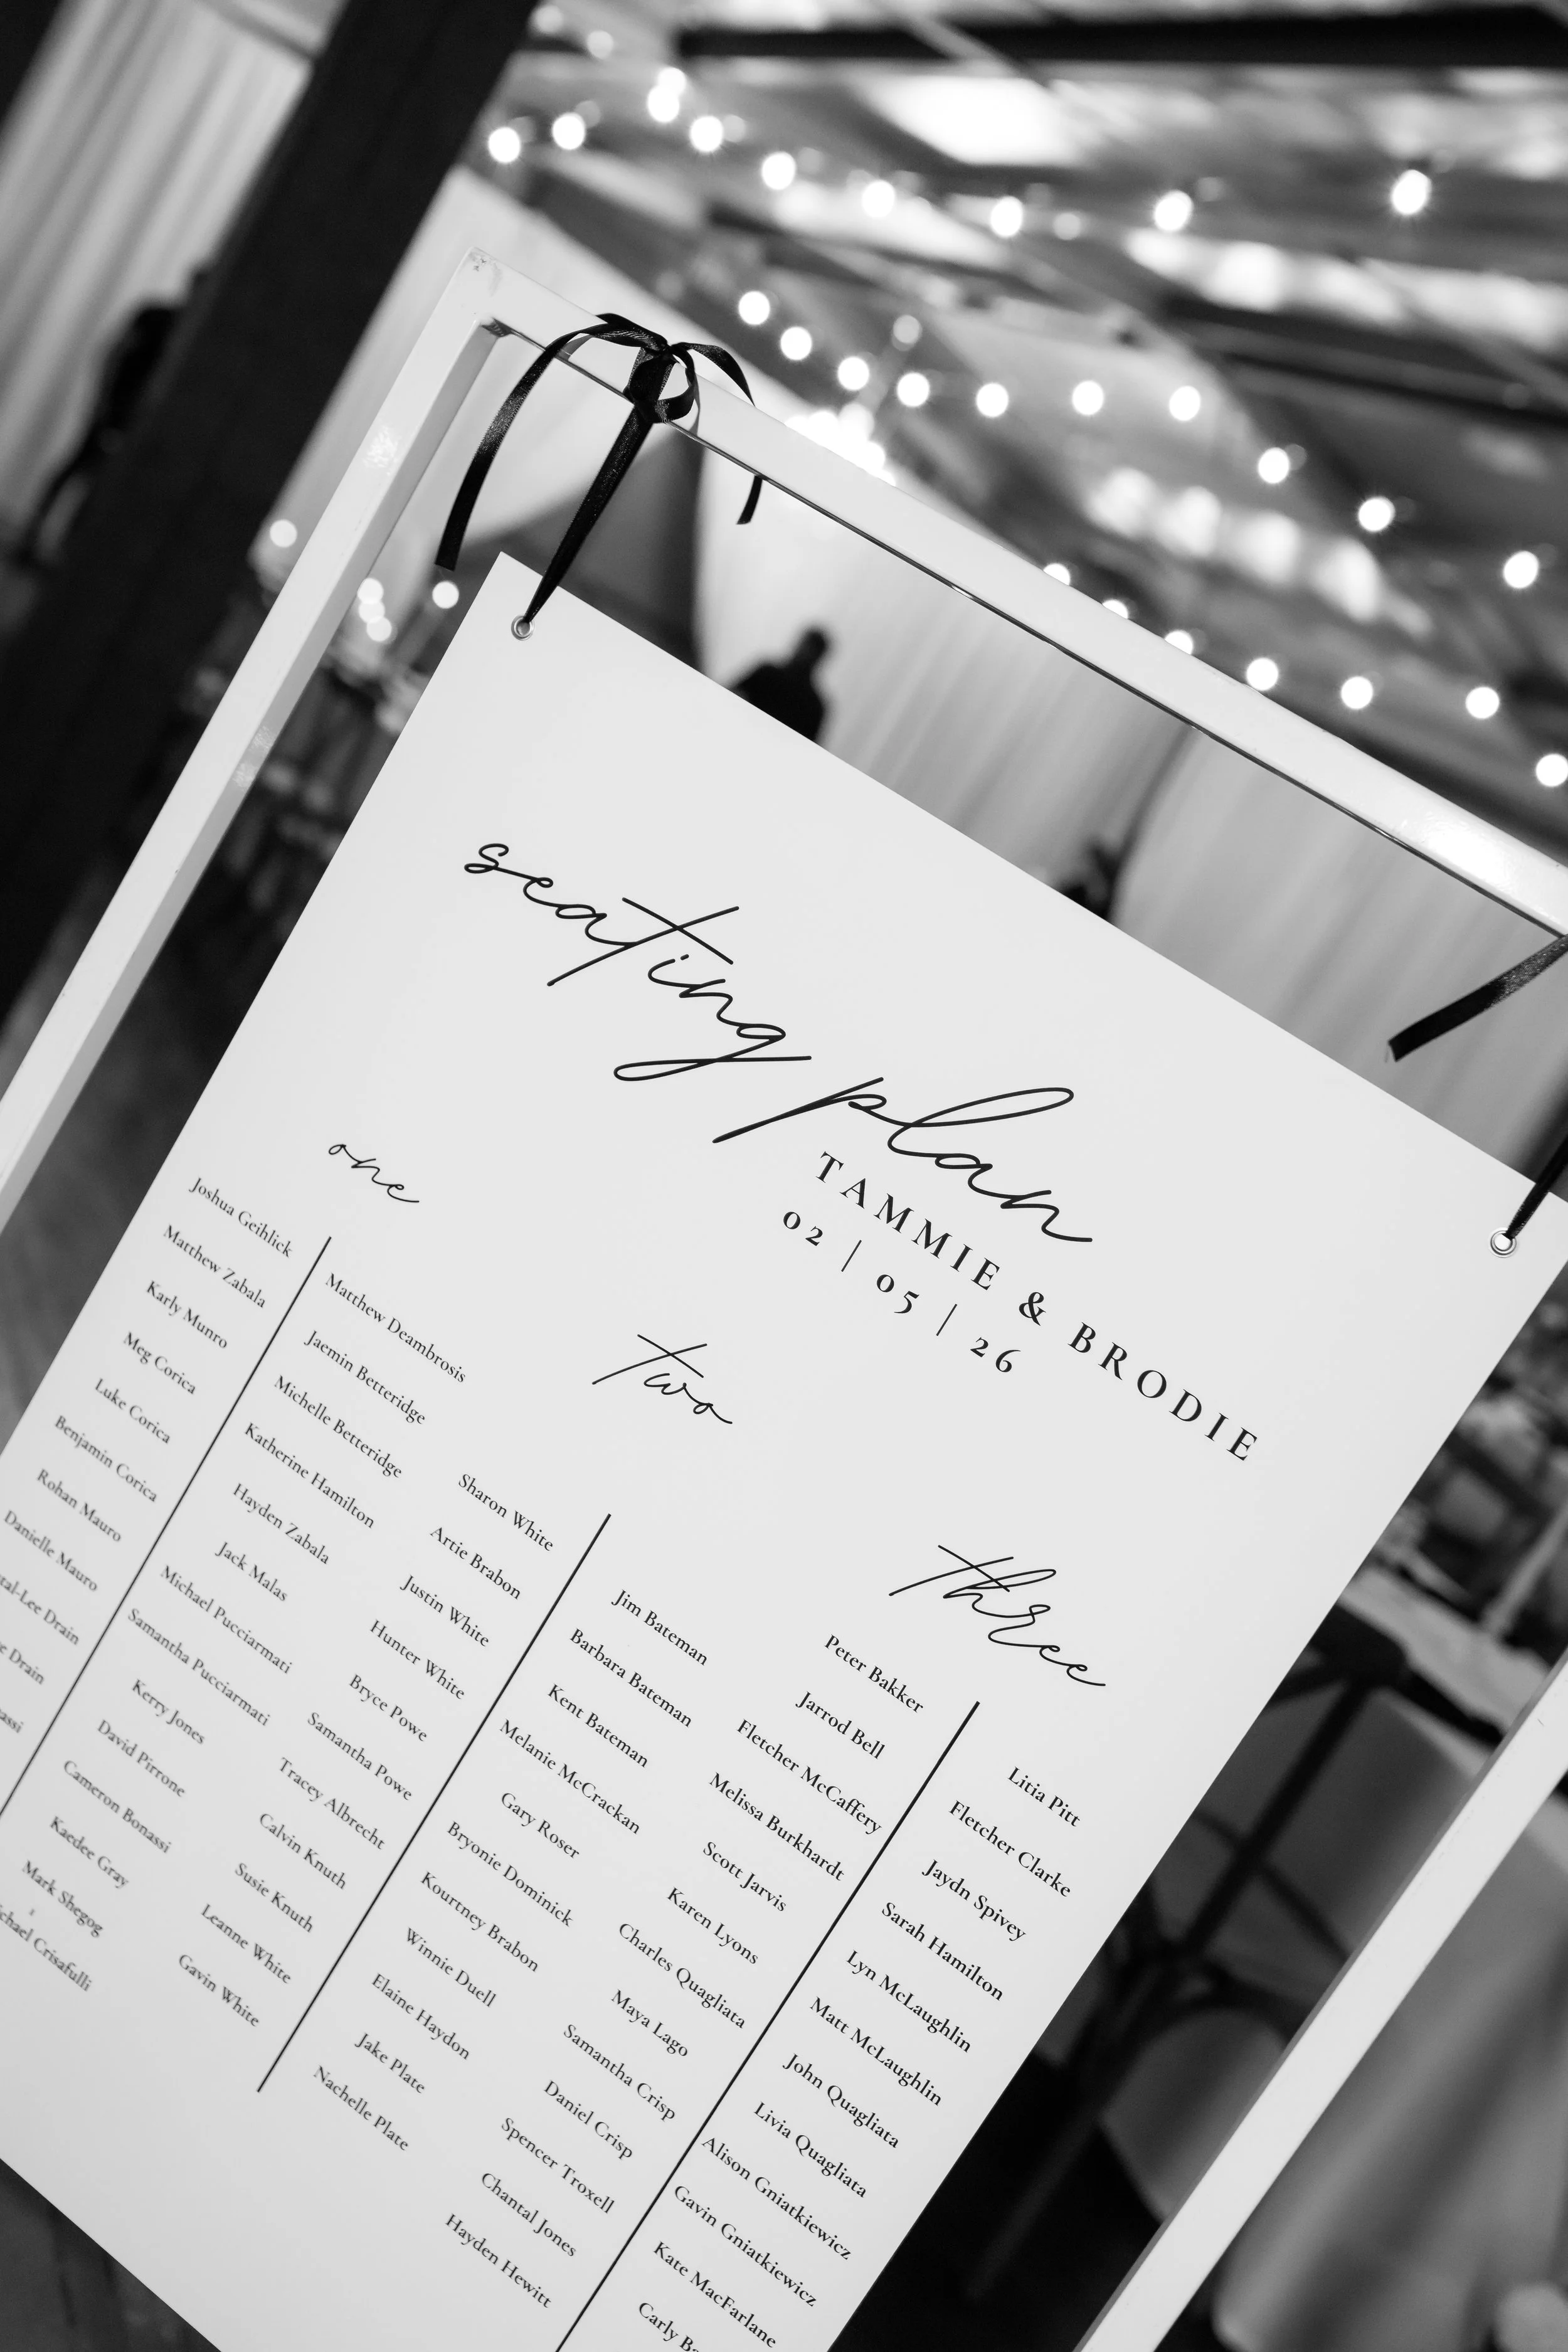 seating plan
TAMMIE & BRODIE
02 | 05 | 26
one
Joshua Geihlick
Matthew Zabala
Karly Munro
Meg Corica
Luke Corica
Benjamin Corica
Rohan Mauro
Danielle Mauro
Drain
Drain
Matthew Deambrosis
Jaemin Betteridge
Michelle Betteridge
Katherine Hamilton
Hayden Zabala
Jack Malas
Michael Pucciarmati
Samantha Pucciarmati
Kerry Jones
David Pirrone
Cameron Bonassi
Kaedee Gray
Mark Shegog
Crisafulli
two
Sharon White
Artie Brabon
Justin White
Hunter White
Bryce Powe
Samantha Powe
Tracey Albrecht
Calvin Knuth
Susie Knuth
Leanne White
Gavin White
Jim Bateman
Barbara Bateman
Kent Bateman
Melanie McCrackan
Gary Roser
Bryonie Dominick
Kourtney Brabon
Winnie Duell
Elaine Haydon
Jake Plate
Nachelle Plate
three
Peter Bakker
Jarrod Bell
Fletcher McCaffery
Melissa Burkhardt
Scott Jarvis
Karen Lyons
Charles Quagliata
Maya Lago
Samantha Crisp
Daniel Crisp
Spencer Troxell
Chantal Jones
Hayden Hewitt
Litia Pitt
Fletcher Clarke
Jaydn Spivey
Sarah Hamilton
Lyn McLaughlin
Matt McLaughlin
John Quagliata
Livia Quagliata
Alison Gniatkiewicz
Gavin Gniatkiewicz
Kate MacFarlane
Carly